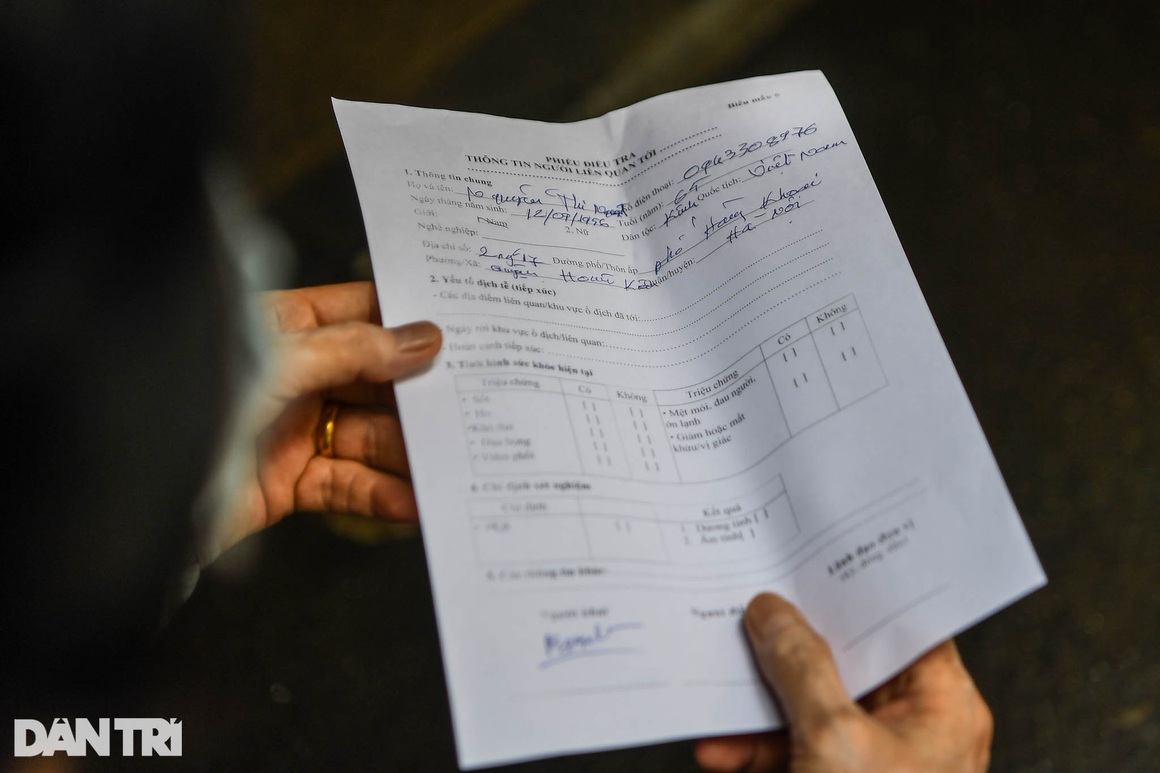 Biểu mẫu
PHIẾU ĐIỀU TRA
THÔNG TIN NGƯỜI LIÊN QUAN TỚI
1. Thông tin chung
Họ và tên: Nguyễn Thị Số điện thoại: 0943308976
Ngày tháng năm sinh: 12/09/1956 Tuổi (năm): 65 Quốc tịch: Việt Nam
Giới: 1.Nam 2. Nữ Dân tộc: Kinh
Nghề nghiệp:
Địa chỉ số: 2 Đường phố/Thôn ấp phố Hàng Khoai
Phường/Xã: Quận Hoàn Kiếm Quận/huyện: Hà - Nội
2. Yếu tố dịch tễ (tiếp xúc)
- Các địa điểm liên quan/khu vực ổ dịch đã tới:
- Ngày tới khu vực ổ dịch/liên quan:
- Hoàn cảnh tiếp xúc:
3. Tình hình sức khỏe hiện tại
Triệu chứng Có Không Triệu chứng Có Không
• Sốt [ ] [ ] • Mệt mỏi, đau người, ớn lạnh [ ] [ ]
• Ho [ ] [ ]
• Khó thở [ ] [ ] • Giảm hoặc mất khứu/vị giác [ ] [ ]
• Đau họng [ ] [ ]
• Viêm phổi [ ] [ ]
4. Chỉ định xét nghiệm
Chỉ định Kết quả
[ ] 1. Dương tính [ ]
2. Âm tính [ ]
5. Các thông tin khác:
Người khai Người Lãnh đạo đơn vị
(Ký, đóng dấu)
DÂN TRÍ